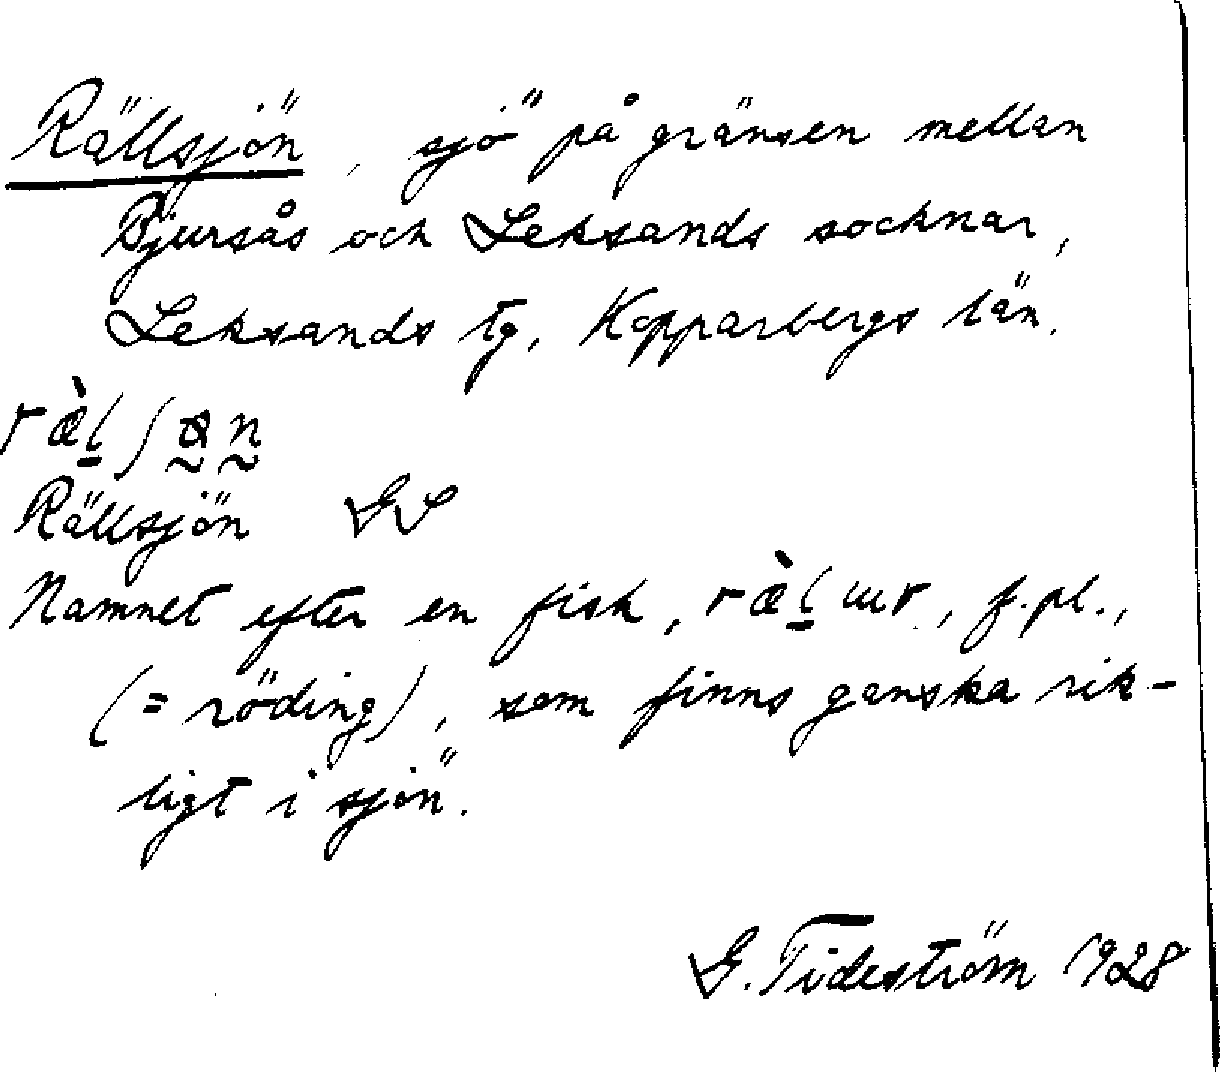 Rällsjön, sjö på gränsen mellan
Bjursås och Leksands socknar,
Leksands tg, Kopparbergs län.
Rällsjön GS
Namnet efter en fisk, f.pl.,
(= röding), som finns ganska rik-
ligt i sjön.
G. Tideström 1928